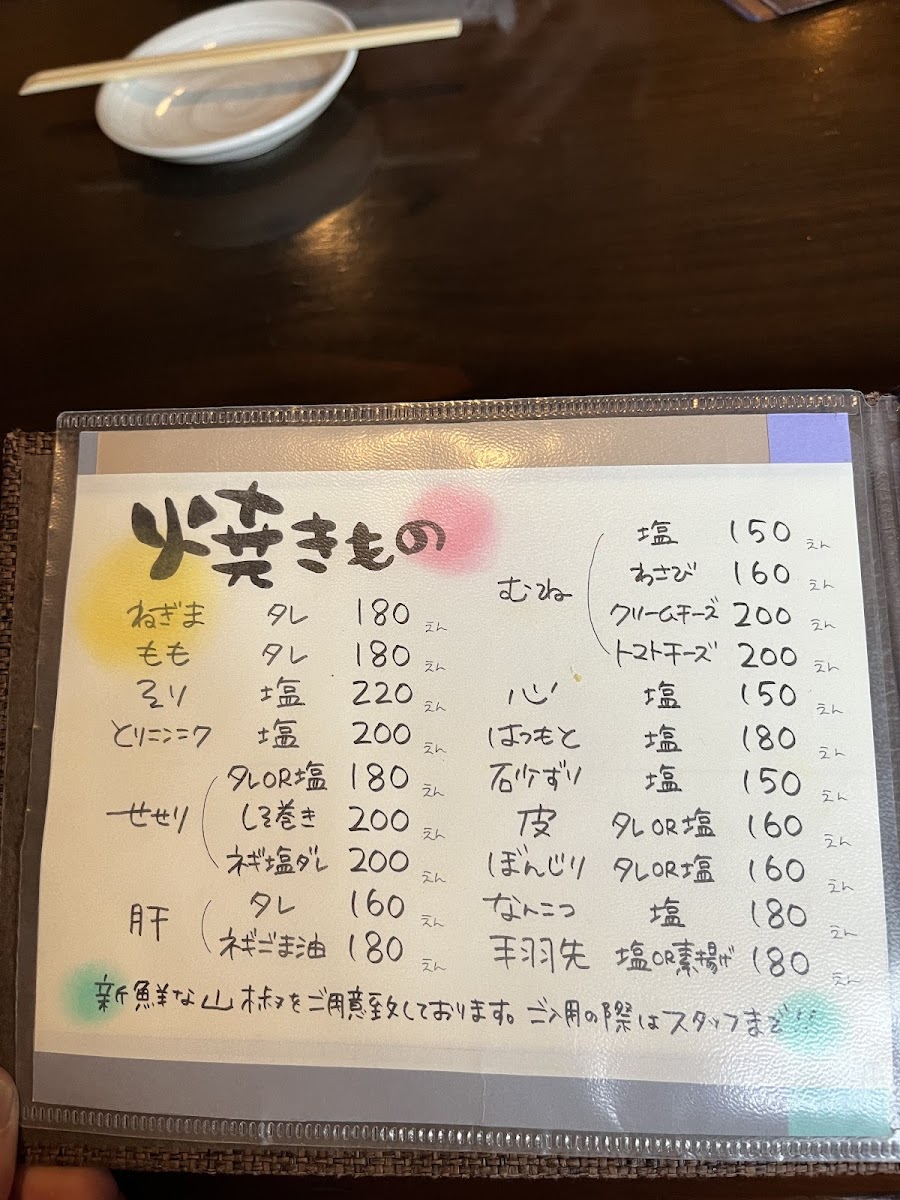 焼きもの
ねぎま タレ 180えん
もも タレ 180えん
そり 塩 220えん
とりニンニク 塩 200えん
せせり タレOR塩 180えん
しそ巻き 200えん
ネギ塩ダレ 200えん
肝 タレ 160えん
ネギごま油 180えん
むね 塩 150えん
わさび 160えん
クリームチーズ 200えん
トマトチーズ 200えん
心 塩 150えん
はつもと 塩 180えん
石少ずり 塩 150えん
皮 タレOR塩 160えん
ぼんじり タレOR塩 160えん
なんこつ 塩 180えん
手羽先 塩OR素揚げ 180えん
新鮮な山椒をご用意致しております。ご入用の際はスタッフまで!!